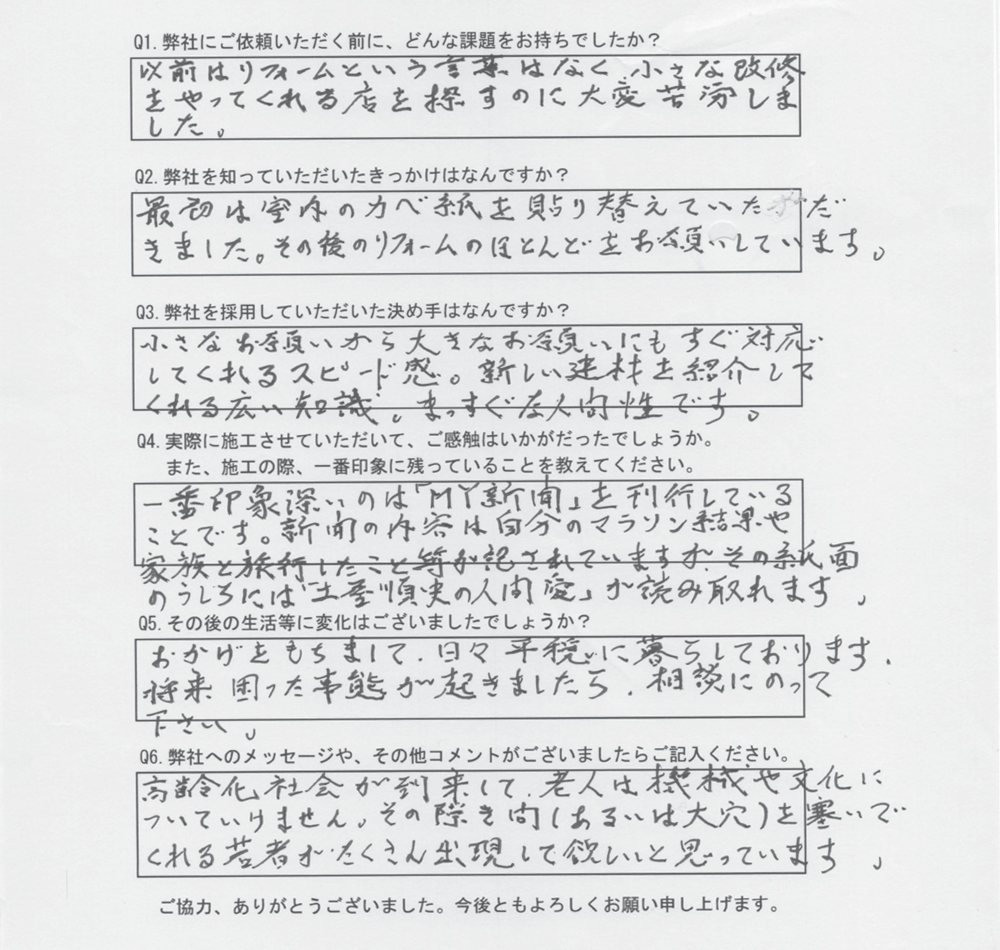 Q1. 弊社にご依頼いただく前に、どんな課題をお持ちでしたか？
以前はリフォームという言葉はなく、小さな改修
をやってくれる店を探すのに大変苦労しま
した。
Q2. 弊社を知っていただいたきっかけはなんですか？
最初は室内のカベ紙を貼り替えていただ
きました。その後のリフォームのほとんどをお願いしています。
Q3. 弊社を採用していただいた決め手はなんですか？
小さなお願いから大きなお願いにもすぐ対応
してくれるスピード感。新しい建材を紹介して
くれる広い知識。まっすぐな人間性です。
Q4. 実際に施工させていただいて、ご感触はいかがだったでしょうか。
また、施工の際、一番印象に残っていることを教えてください。
一番印象深いのは「MY新聞」を刊行している
ことです。新聞の内容は自分のマラソン結果や
家族と旅行したこと等が記されていますが、その紙面
のうしろには「土屋順史の人間愛」が読み取れます。
Q5. その後の生活等に変化はございましたでしょうか？
おかげをもちまして、日々平穏に暮らしております。
将来困った事態が起きましたら、相談にのって
下さい。
Q6. 弊社へのメッセージや、その他コメントがございましたらご記入ください。
高齢化社会が到来して、老人は機械や文化に
ついていけません。その隙き間(あるいは大穴)を塞いで
くれる若者がたくさん出現して欲しいと思っています。
ご協力、ありがとうございました。今後ともよろしくお願い申し上げます。